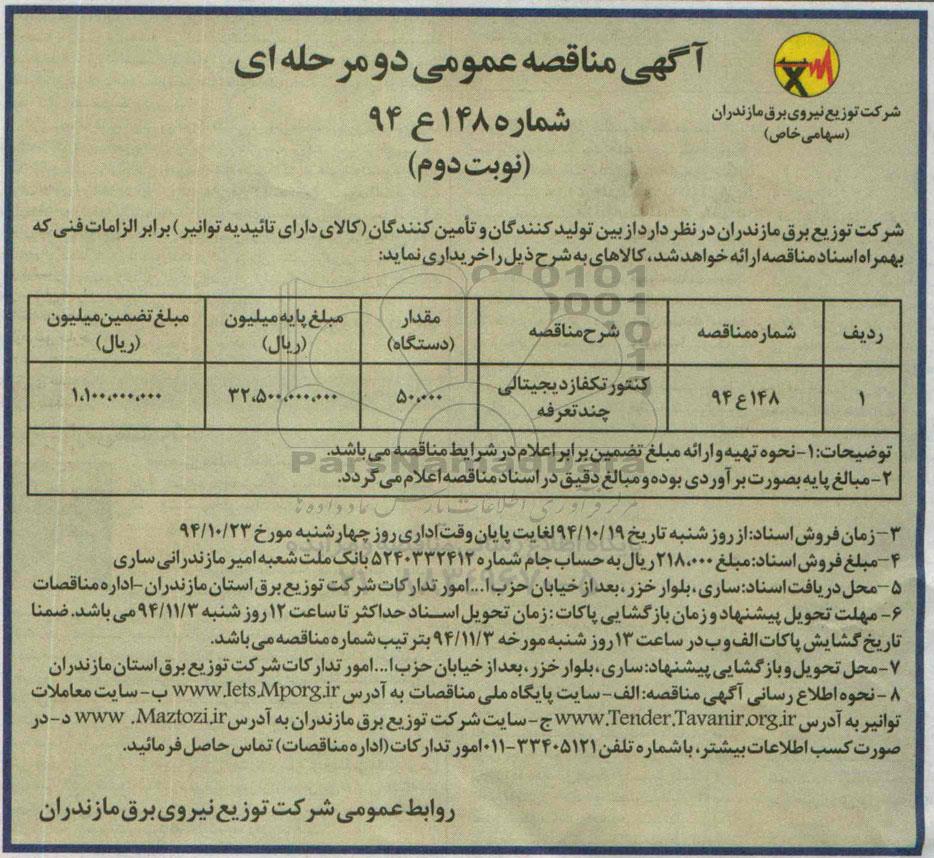 آگهی مناقصه عمومی دو مرحله ای
شماره ۱۴۸ ع ۹۴
(نوبت دوم)
شرکت توزیع نیروی برق مازندران
(سهامی خاص)
شرکت توزیع برق مازندران در نظر دارد از بین تولید کنندگان و تأمین کنندگان (کالای دارای تائیدیه توانیر) برابر الزامات فنی که
بهمراه اسناد مناقصه ارائه خواهد شد، کالاهای به شرح ذیل را خریداری نماید:
ردیف | شماره مناقصه | شرح مناقصه | مقدار (دستگاه) | مبلغ پایه میلیون (ریال) | مبلغ تضمین میلیون (ریال)
۱ | ۱۴۸ ع ۹۴ | کنتور تکفاز دیجیتالی چند تعرفه | ۵۰,۰۰۰ | ۳۲,۵۰۰,۰۰۰,۰۰۰ | ۱,۱۰۰,۰۰۰,۰۰۰
توضیحات: ۱- نحوه تهیه و ارائه مبلغ تضمین برابر اعلام در شرایط مناقصه می باشد.
۲- مبالغ پایه بصورت برآوردی بوده و مبالغ دقیق در اسناد مناقصه اعلام می گردد.
ParsNamadData
۳- زمان فروش اسناد: از روز شنبه تاریخ ۹۴/۱۰/۱۹ لغایت پایان وقت اداری روز چهارشنبه مورخ ۹۴/۱۰/۲۳
۴- مبلغ فروش اسناد: مبلغ ۲۱۸,۰۰۰ ریال به حساب جام شماره ۵۲۴۰۳۳۲۴۱۲ بانک ملت شعبه امیر مازندرانی ساری
۵- محل دریافت اسناد: ساری، بلوار خزر، بعد از خیابان حزب ا... امور تدارکات شرکت توزیع برق استان مازندران- اداره مناقصات
۶- مهلت تحویل پیشنهاد و زمان بازگشایی پاکات: زمان تحویل اسناد حداکثر تا ساعت ۱۲ روز شنبه ۹۴/۱۱/۳ می باشد. ضمنا
تاریخ گشایش پاکات الف و ب در ساعت ۱۳ روز شنبه مورخه ۹۴/۱۱/۳ بترتیب شماره مناقصه می باشد.
۷- محل تحویل و بازگشایی پیشنهاد: ساری، بلوار خزر، بعد از خیابان حزب ا... امور تدارکات شرکت توزیع برق استان مازندران
۸- نحوه اطلاع رسانی آگهی مناقصه: الف- سایت پایگاه ملی مناقصات به آدرس www.Iets.Mporg.ir ب- سایت معاملات
توانیر به آدرس www.Tender.Tavanir.org.ir ج- سایت شرکت توزیع برق مازندران به آدرس www .Maztozi.ir د- در
صورت کسب اطلاعات بیشتر، با شماره تلفن ۳۳۴۰۵۱۲۱-۰۱۱ امور تدارکات (اداره مناقصات) تماس حاصل فرمائید.
روابط عمومی شرکت توزیع نیروی برق مازندران